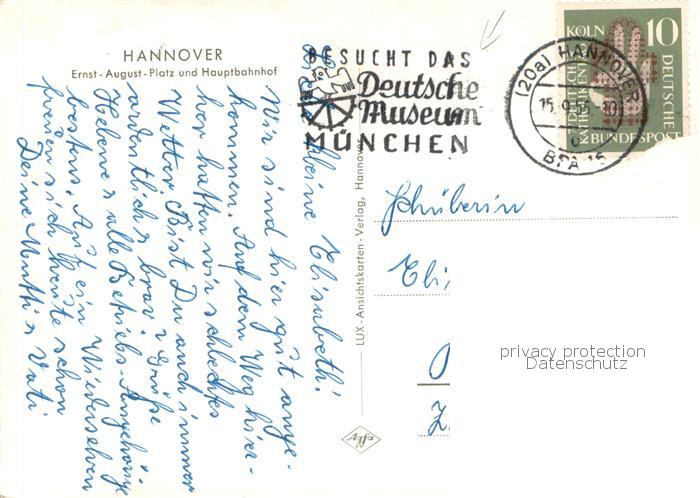 HANNOVER
Ernst-August-Platz und Hauptbahnhof
BESUCHT DAS
Deutsche
Museum
MÜNCHEN
(20a) HANNOVER
15. 9. 56. 10
BPA 15
KÖLN
10
KATHOLIKENTAG
BUNDESPOST
meine Elisabeth!
Wir sind hier gut ange-
kommen. Auf dem Weg hier-
her hatten wir schlechtes
Wetter. Bist Du auch immer
ordentlich u brav? Grüße
Helene u alle Betriebs-Angehörige
bestens. Auf ein Wiedersehen
freuen sich heute schon
Deine Mutti u Vati.
LUX-Ansichtskarten-Verlag, Hannover
Agfa
Schülerin
Eli
privacy protection
Datenschutz